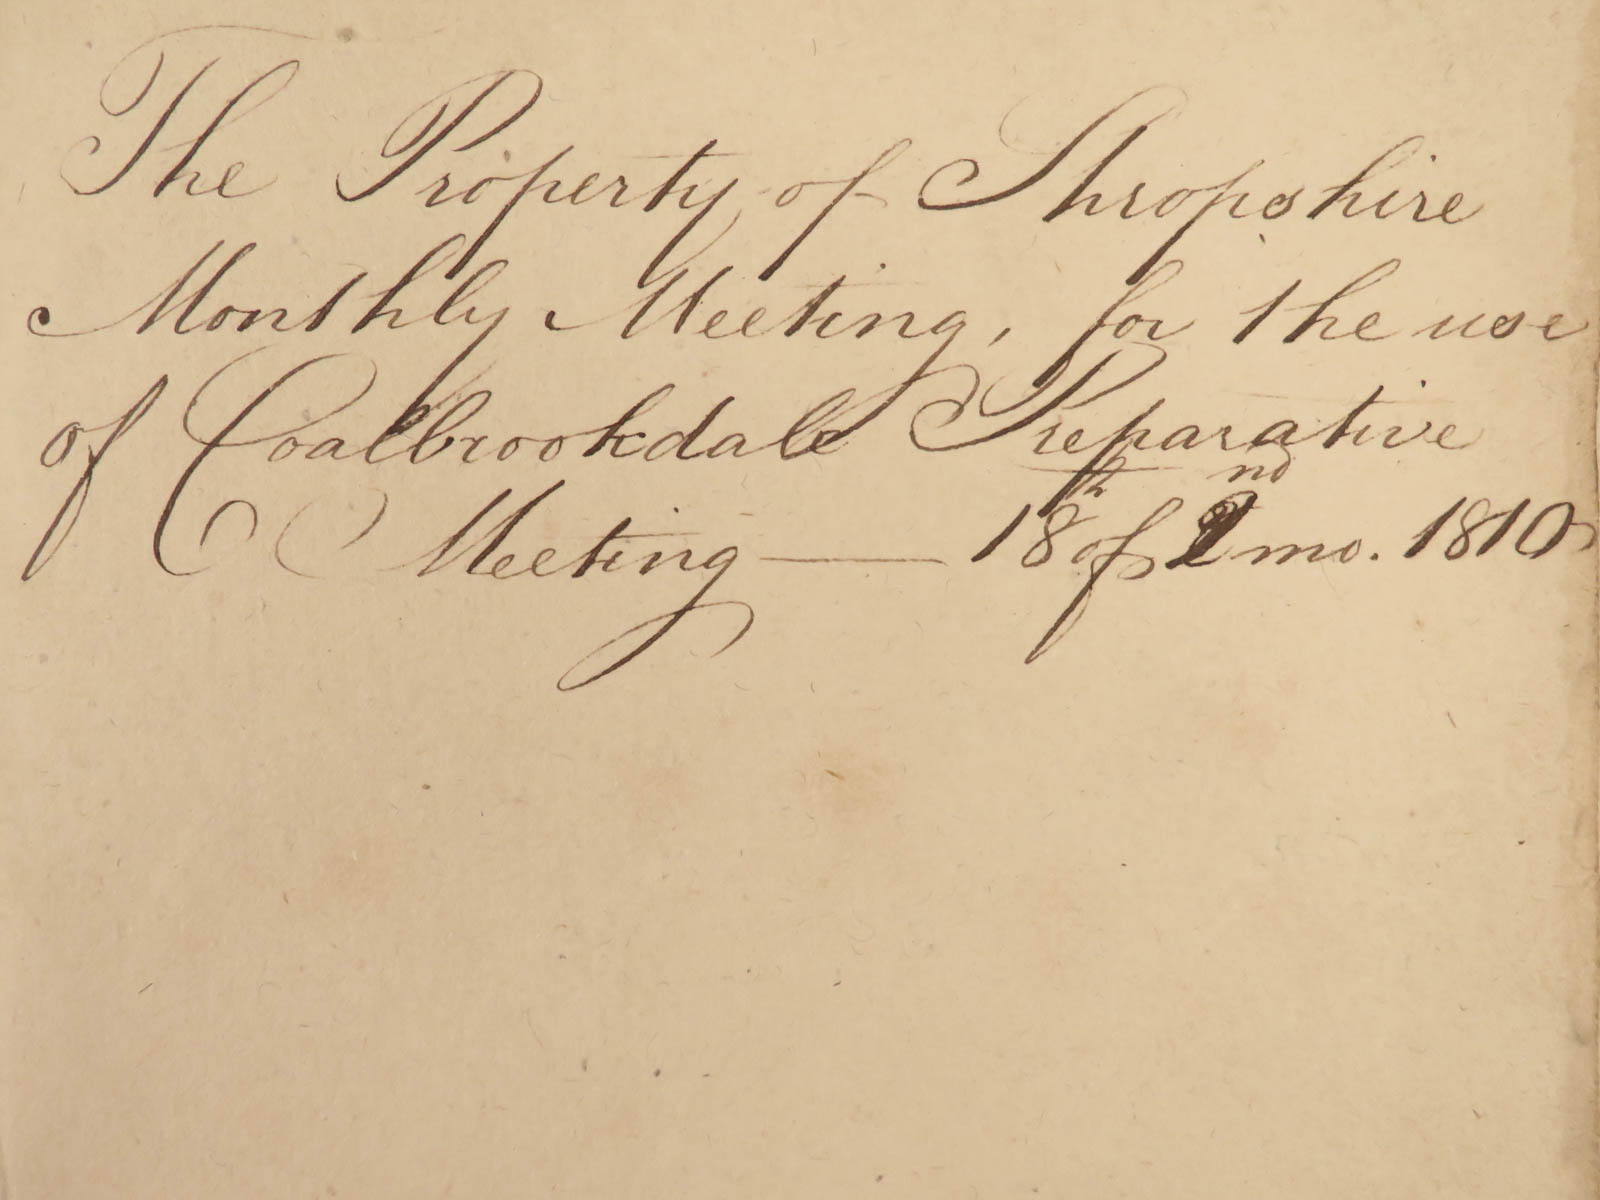 The Property of Shropshire
Monthly Meeting, for the use
of Coalbrookdale Preparative
Meeting — 18th of 2nd mo. 1810